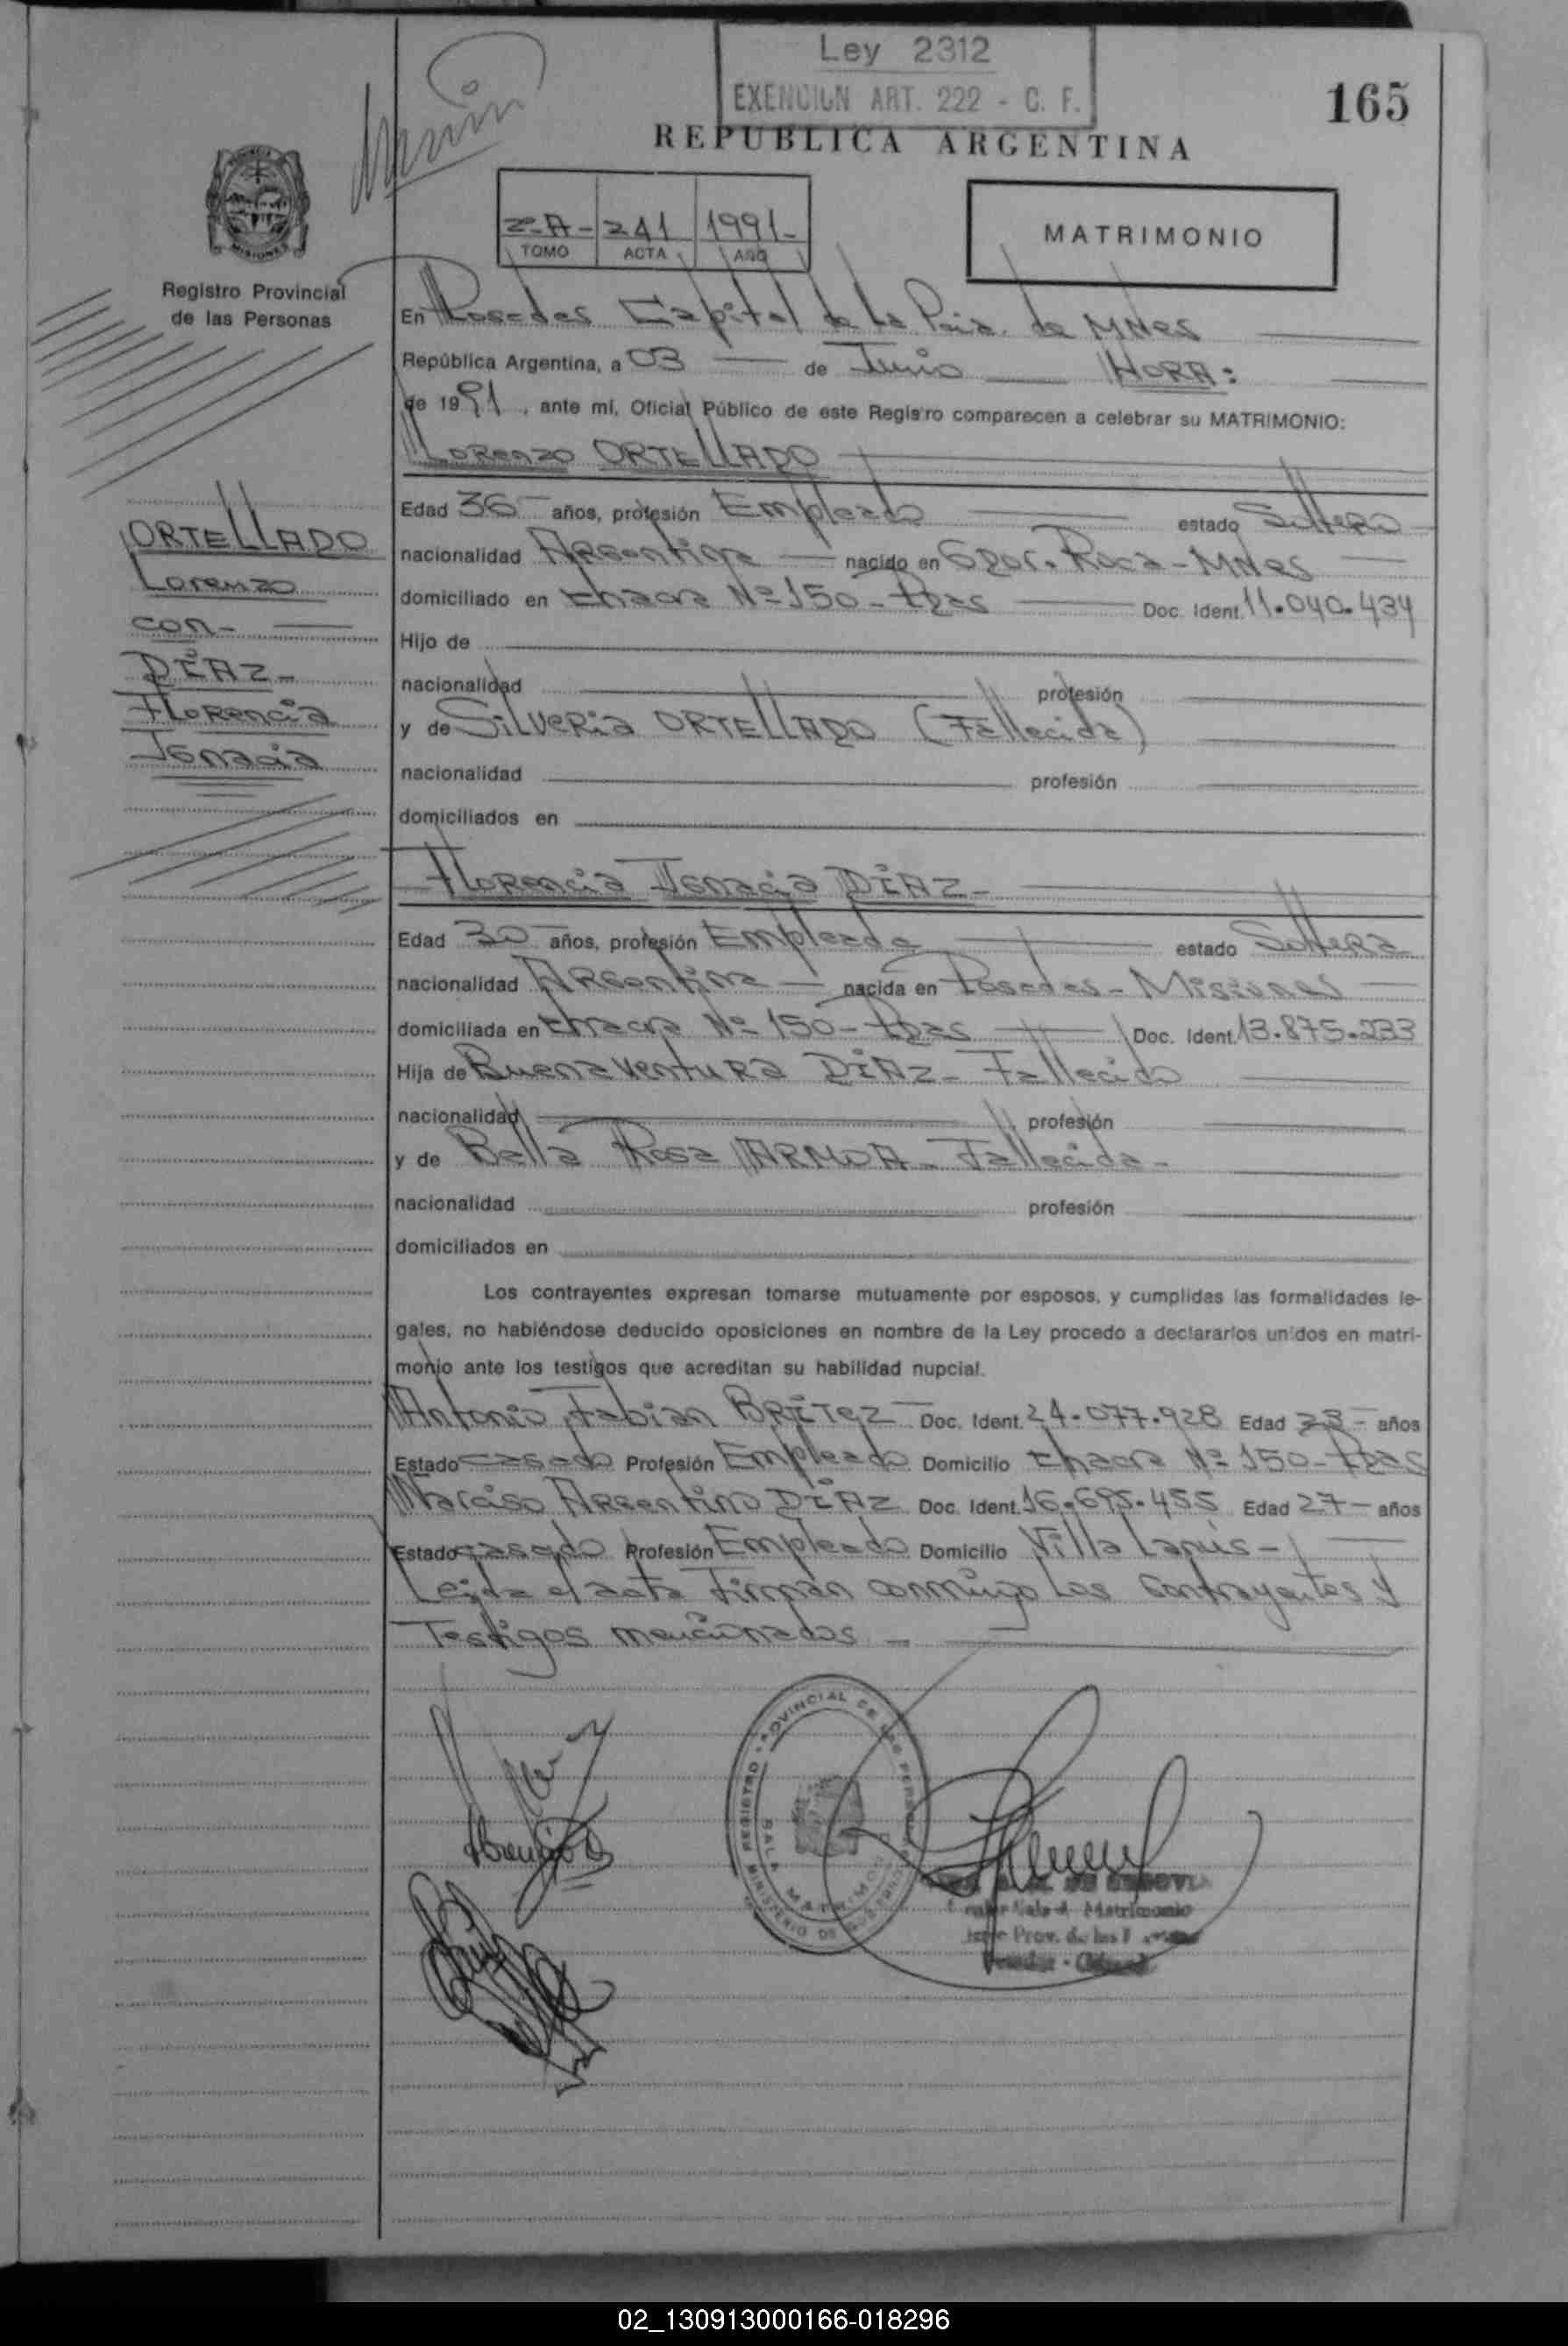 Ley 2312
EXENCION ART. 222 - C. F.
165
REPUBLICA ARGENTINA
2-A- 241 1991-
TOMO ACTA AÑO
MATRIMONIO
PROVINCIA
MISIONES
Registro Provincial
de las Personas
En Posadas Capital de la Pcia. de MNes
República Argentina, a 03 de Junio HORA:
de 1991, ante mí, Oficial Público de este Registro comparecen a celebrar su MATRIMONIO:
Lorenzo ORTELLADO
Edad 36 años, profesión Empleado estado Soltero
nacionalidad Argentina nacido en Gdor. Roca - MNes
domiciliado en Chacra Nº 150 - Pdas Doc. Ident. 11.040.434
Hijo de
nacionalidad profesión
y de Silveria ORTELLADO (Fallecida)
nacionalidad profesión
domiciliados en
ORTELLADO
Lorenzo
con-
DÍAZ-
Florencia
Ignacia
Florencia Ignacia DÍAZ-
Edad 30 años, profesión Empleada estado Soltera
nacionalidad Argentina nacida en Posadas - Misiones
domiciliada en Chacra Nº 150 - Pdas Doc. Ident. 13.875.233
Hija de Buenaventura DÍAZ - Fallecido
nacionalidad profesión
y de Bella Rosa ARMOA - Fallecida -
nacionalidad profesión
domiciliados en
Los contrayentes expresan tomarse mutuamente por esposos, y cumplidas las formalidades le-
gales, no habiéndose deducido oposiciones en nombre de la Ley procedo a declararlos unidos en matri-
monio ante los testigos que acreditan su habilidad nupcial.
Antonio Fabian BRÍTEZ Doc. Ident. 24.077.928 Edad 23- años
Estado casado Profesión Empleado Domicilio Chacra Nº 150 - Pdas
Narciso Argentino DÍAZ Doc. Ident. 16.695.455 Edad 27- años
Estado casado Profesión Empleado Domicilio Villa Lanús -
Leída el acta Firman conmigo Los Contrayentes y
Testigos mencionados -
REGISTRO PROVINCIAL DE LAS PERSONAS
SALA MATRIMONIO
MINISTERIO DE GOBIERNO
DE SEGOVIA
Sala Matrimonio
Prov. de las
02_130913000166-018296